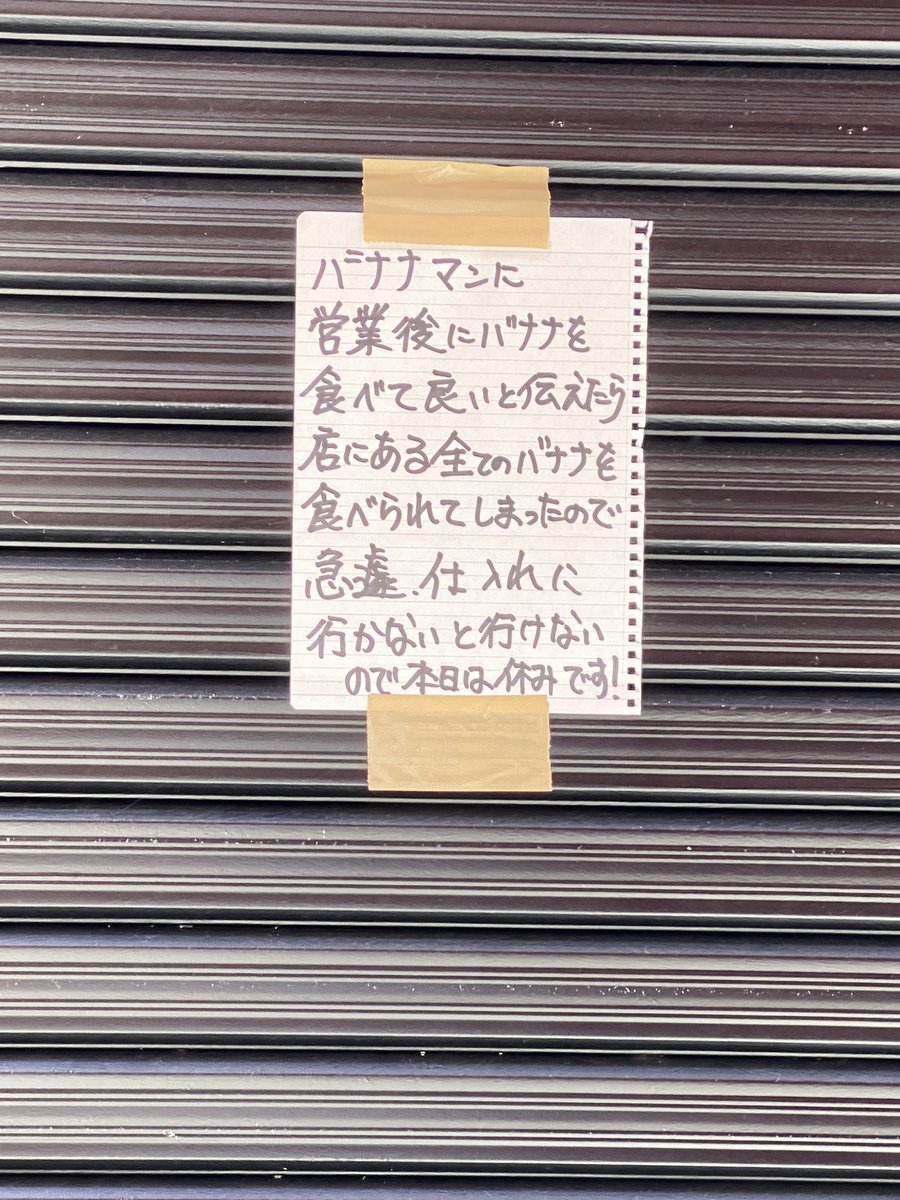 バナナマンに
営業後にバナナを
食べて良いと伝えたら
店にある全てのバナナを
食べられてしまったので
急遽、仕入れに
行かないと行けない
ので本日は休みです!